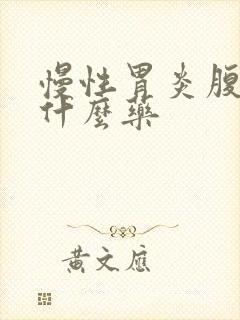 慢性胃炎腹
什麼藥
黄文應